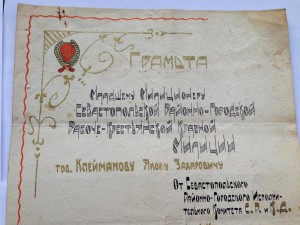 Грамота
Младшему Милиционеру
Севастопольской Районно-Городской
Рабоче-Крестьянской Красной
Милиции
тов. Клейманову Якову Эдаровичу
От Севастопольского
Районно-Городского Исполни-
тельного Комитета С. Р. и К.Д.